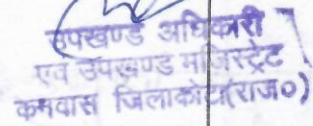 उपखण्ड अधिकारी
एवं उपखण्ड मजिस्ट्रेट
कनवास जिलाकोटा(राज०)